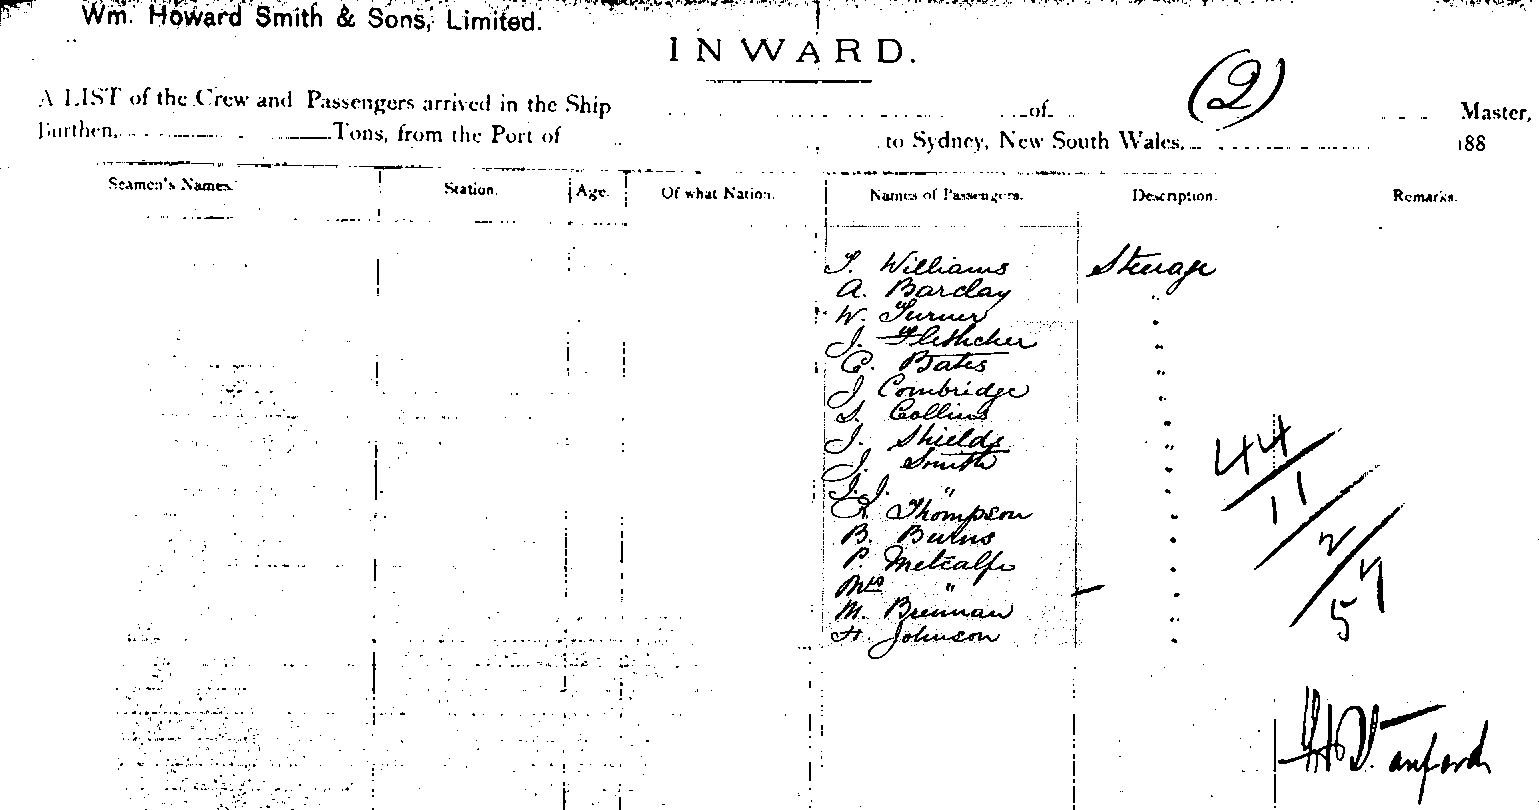 Wm. Howard Smith & Sons, Limited.
INWARD.
(2)
A LIST of the Crew and Passengers arrived in the Ship of Master,
Burthen, Tons, from the Port of to Sydney, New South Wales, 188
Seamen's Names. Station. Age. Of what Nation. Names of Passengers. Description. Remarks.
T. Williams Steerage
A. Barclay "
W. Turner "
J. Fletcher "
C. Bates "
J Combridge "
S. Collins "
J. Shields "
J. Smith "
J. J. " "
R Thompson "
B. Burns "
P. Metcalfe "
Mrs " "
M. Brennan "
H. Johnson "
44
11
2
57